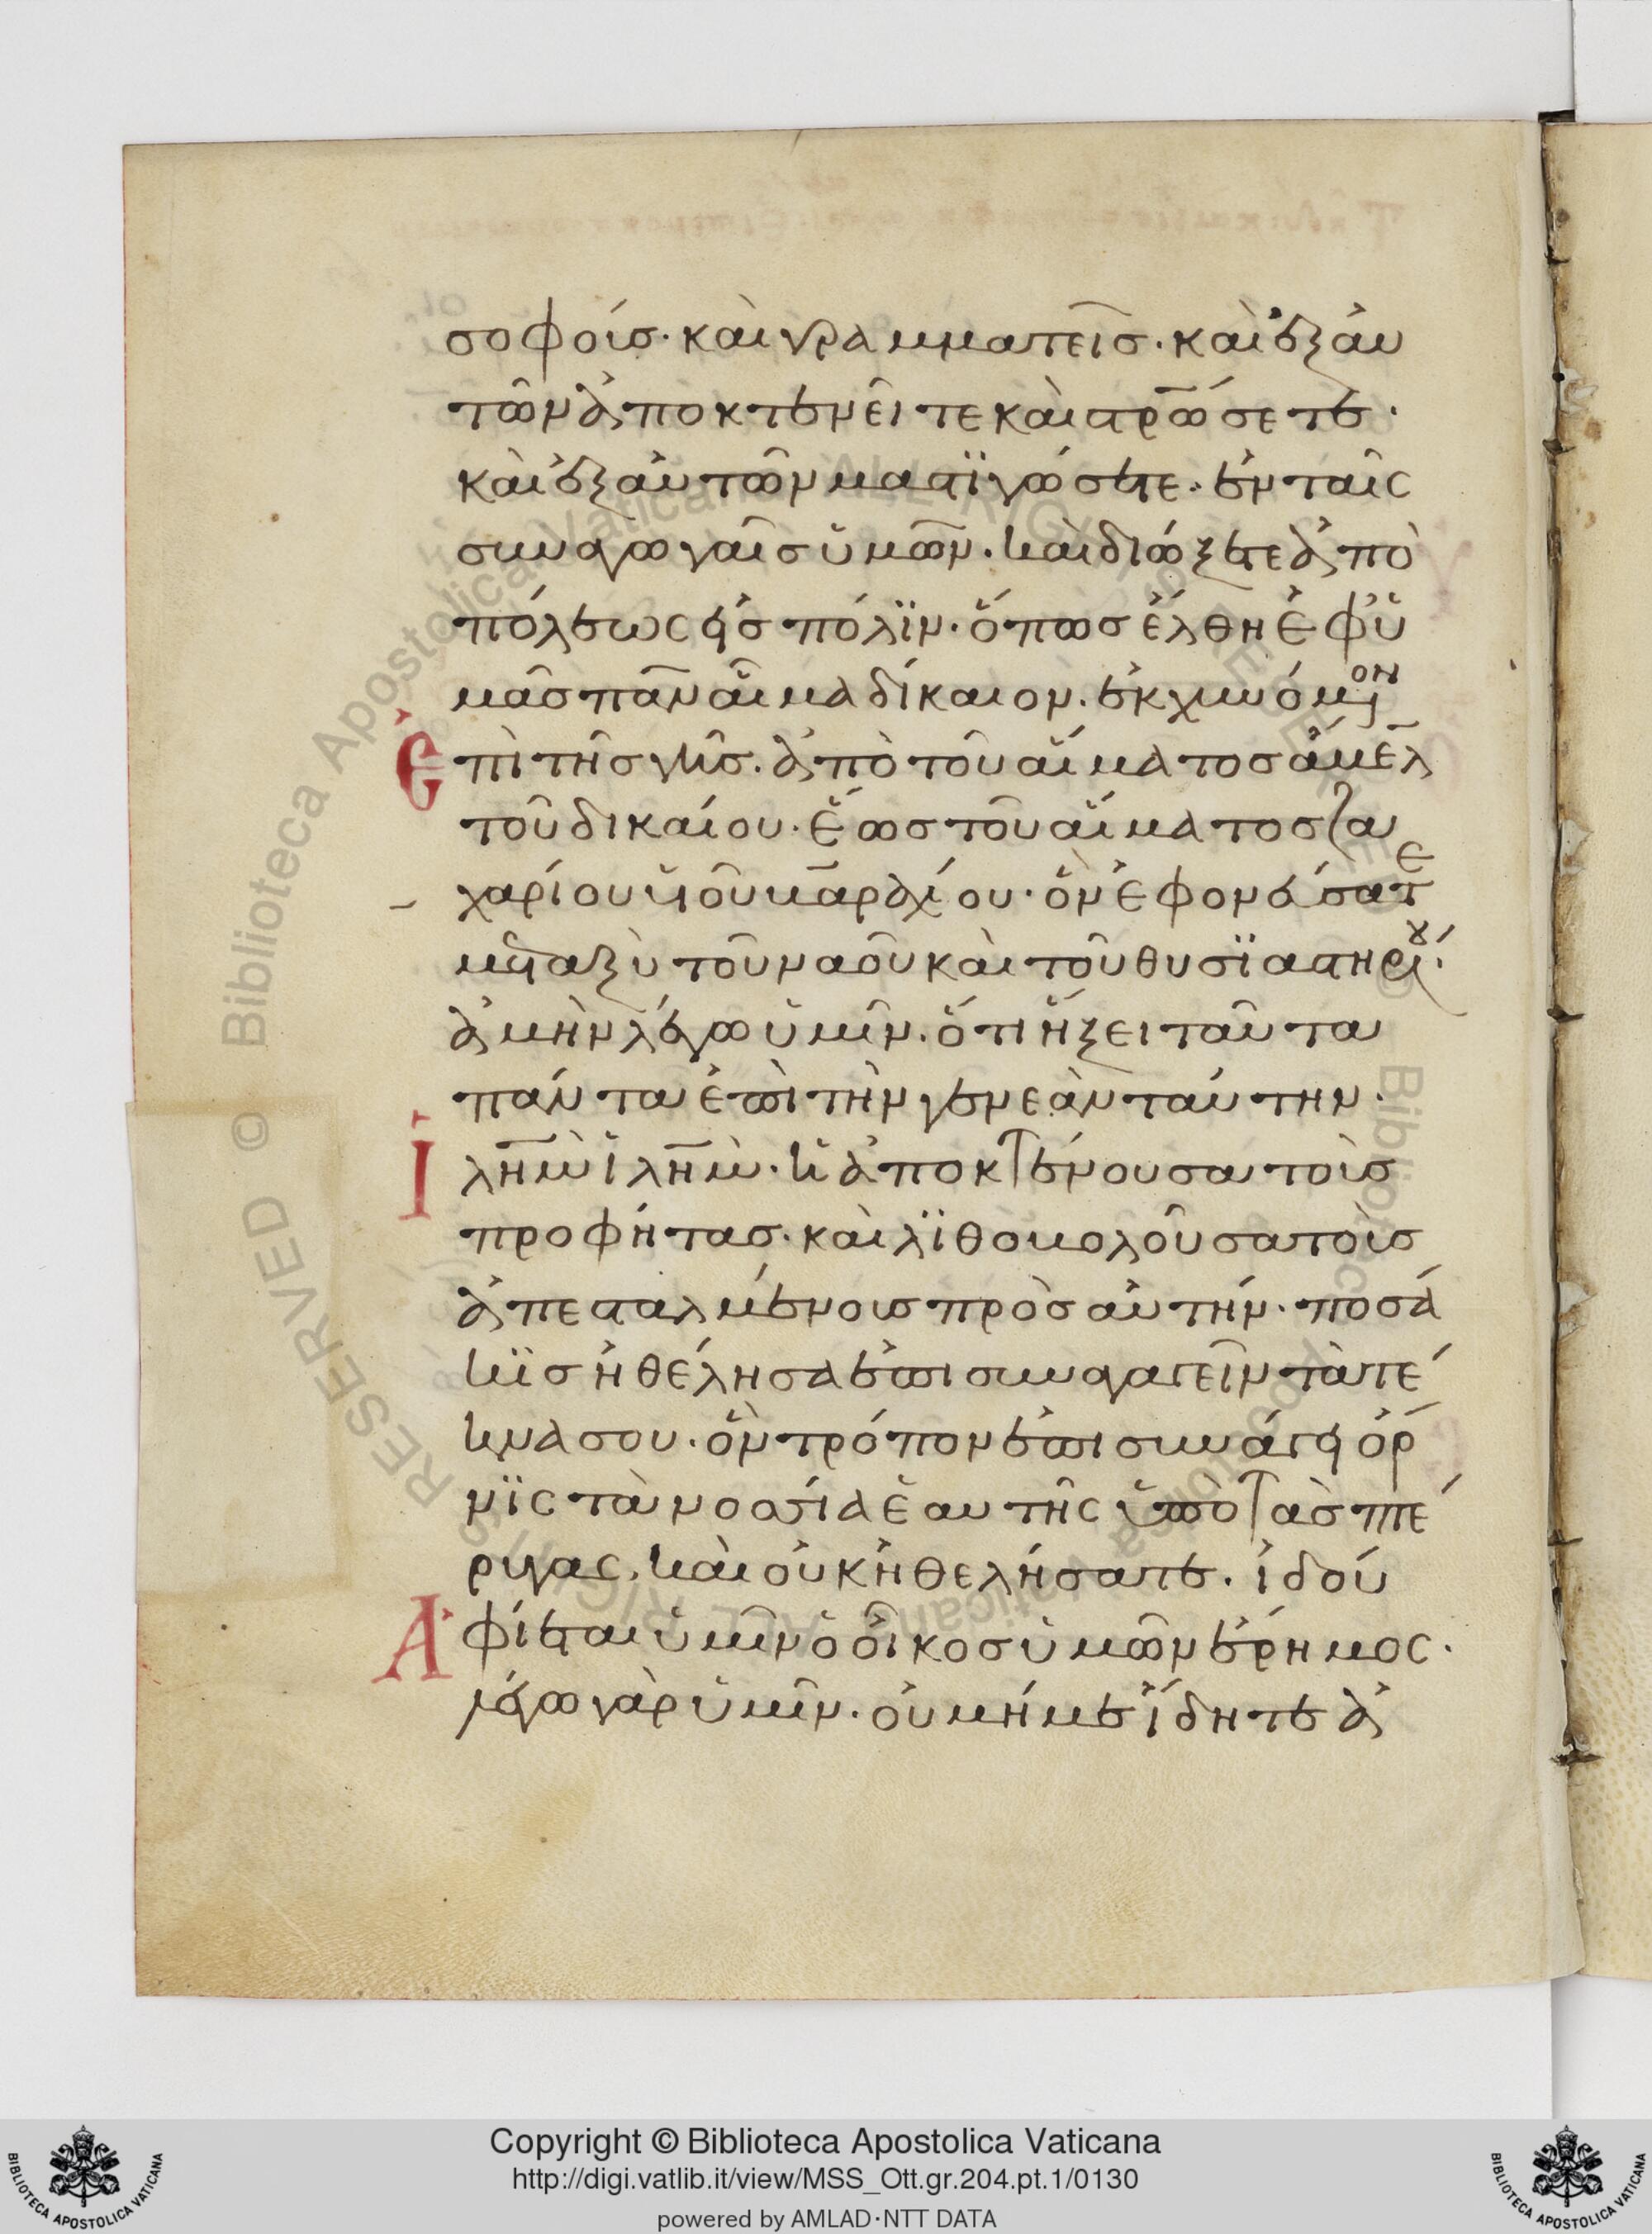 σοφοίσ· καὶ γραμματεῖσ· καὶ ἐξ ἀυ
τῶν ἀποκτενεῖτε καὶ στρώσετε·
καὶ ἐξ ἀυτῶν μαστϊγώσετε· ἐν ταῖς
συναγωγαῖσ ὑμῶν· καὶ διώξετε ἀπὸ
πόλεως εἰσ πόλϊν· ὅπωσ ἔλθη ἐφ ὑ
μᾶσ πᾶν αἷμα δίκαιον· ἐκχυνόμενον
Ἐπὶ τῆσ γῆσ· ἀπὸ τοῦ αἵματοσ ἄμελ
τοῦ δικαίου· ἕωσ τοῦ αἵματοσ ζα
χαρίου υἱοῦ βαραχίου· ὃν ἐφονεύσατε
μεταξὺ τοῦ ναοῦ καὶ τοῦ θυσϊαστηρίου·
ἀμὴν λέγω ὑμῖν· ὅτι ἥξει ταῦτα
πάντα ἐπὶ τὴν γενεὰν ταύτην·
Ἰλημ ἰλημ· ἡ ἀποκτένουσα τοὺσ
προφήτασ· καὶ λϊθοβολοῦσα τοὺσ
ἀπεσταλμένουσ πρὸσ αὐτήν· ποσά
κϊσ ἠθέλησα ἐπισυναγαγεῖν τὰ τέ
κνα σου· ὃν τρόπον ἐπισυνάγει ὄρ
νϊς τὰ νοσσία ἑαυτῆς ὑπὸ τὰσ πτέ
ρυγας, καὶ οὐκ ἠθελήσατε· ἰδού
Ἀφίεται ὑμῖν ὁ οἶκοσ ὑμῶν ἔρημος·
λέγω γὰρ ὑμῖν· οὐ μή με ἴδητε ἀ
Copyright © Biblioteca Apostolica Vaticana
http://digi.vatlib.it/view/MSS_Ott.gr.204.pt.1/0130
powered by AMLAD·NTT DATA
BIBLIOTECA APOSTOLICA VATICANA
BIBLIOTECA APOSTOLICA VATICANA